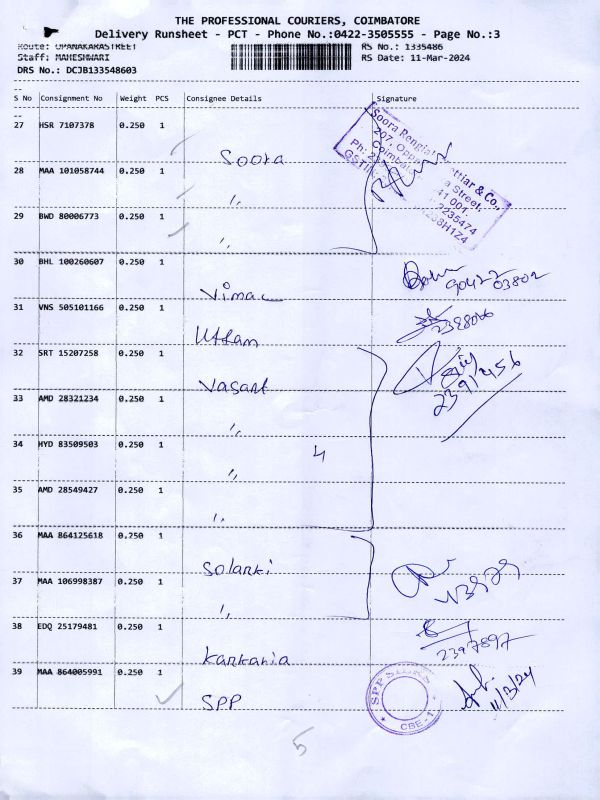 THE PROFESSIONAL COURIERS, COIMBATORE
Delivery Runsheet - PCT - Phone No.:0422-3505555 - Page No.:3
Route: UPANAKARASTREET
RS No.: 1335486
Staff: MAHESHWARI
RS Date: 11-Mar-2024
DRS No.: DCJB133548603
S No Consignment No Weight PCS Consignee Details Signature
27 HSR 7107378 0.250 1
Soora
28 MAA 101058744 0.250 1
"
29 BWD 80006773 0.250 1
"
30 BHL 100260607 0.250 1
Vimal
31 VNS 505101166 0.250 1
Uttam
32 SRT 15207258 0.250 1
Vasant
33 AMD 28321234 0.250 1
"
34 HYD 83509503 0.250 1
4
"
35 AMD 28549427 0.250 1
"
36 MAA 864125618 0.250 1
Solanki
37 MAA 106998387 0.250 1
"
38 EDQ 25179481 0.250 1
2397897
Karkania
39 MAA 864005991 0.250 1
SPP
11/3/24
CBE - 1
5